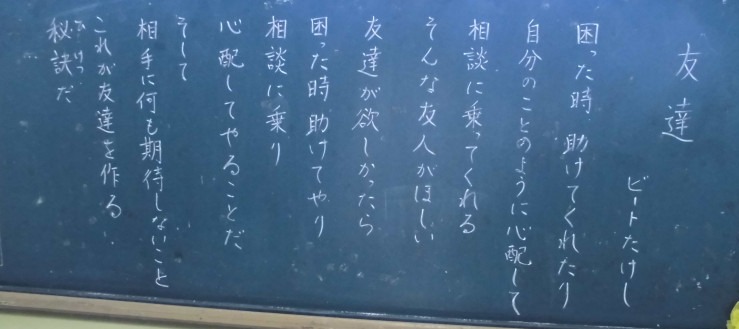 友達
ビートたけし
困った時 助けてくれたり
自分のことのように心配して
相談に乗ってくれる
そんな友人がほしい
友達が欲しかったら
困った時助けてやり
相談に乗り
心配してやることだ
そして
相手に何も期待しないこと
これが友達を作る
秘訣だ
ひけつ